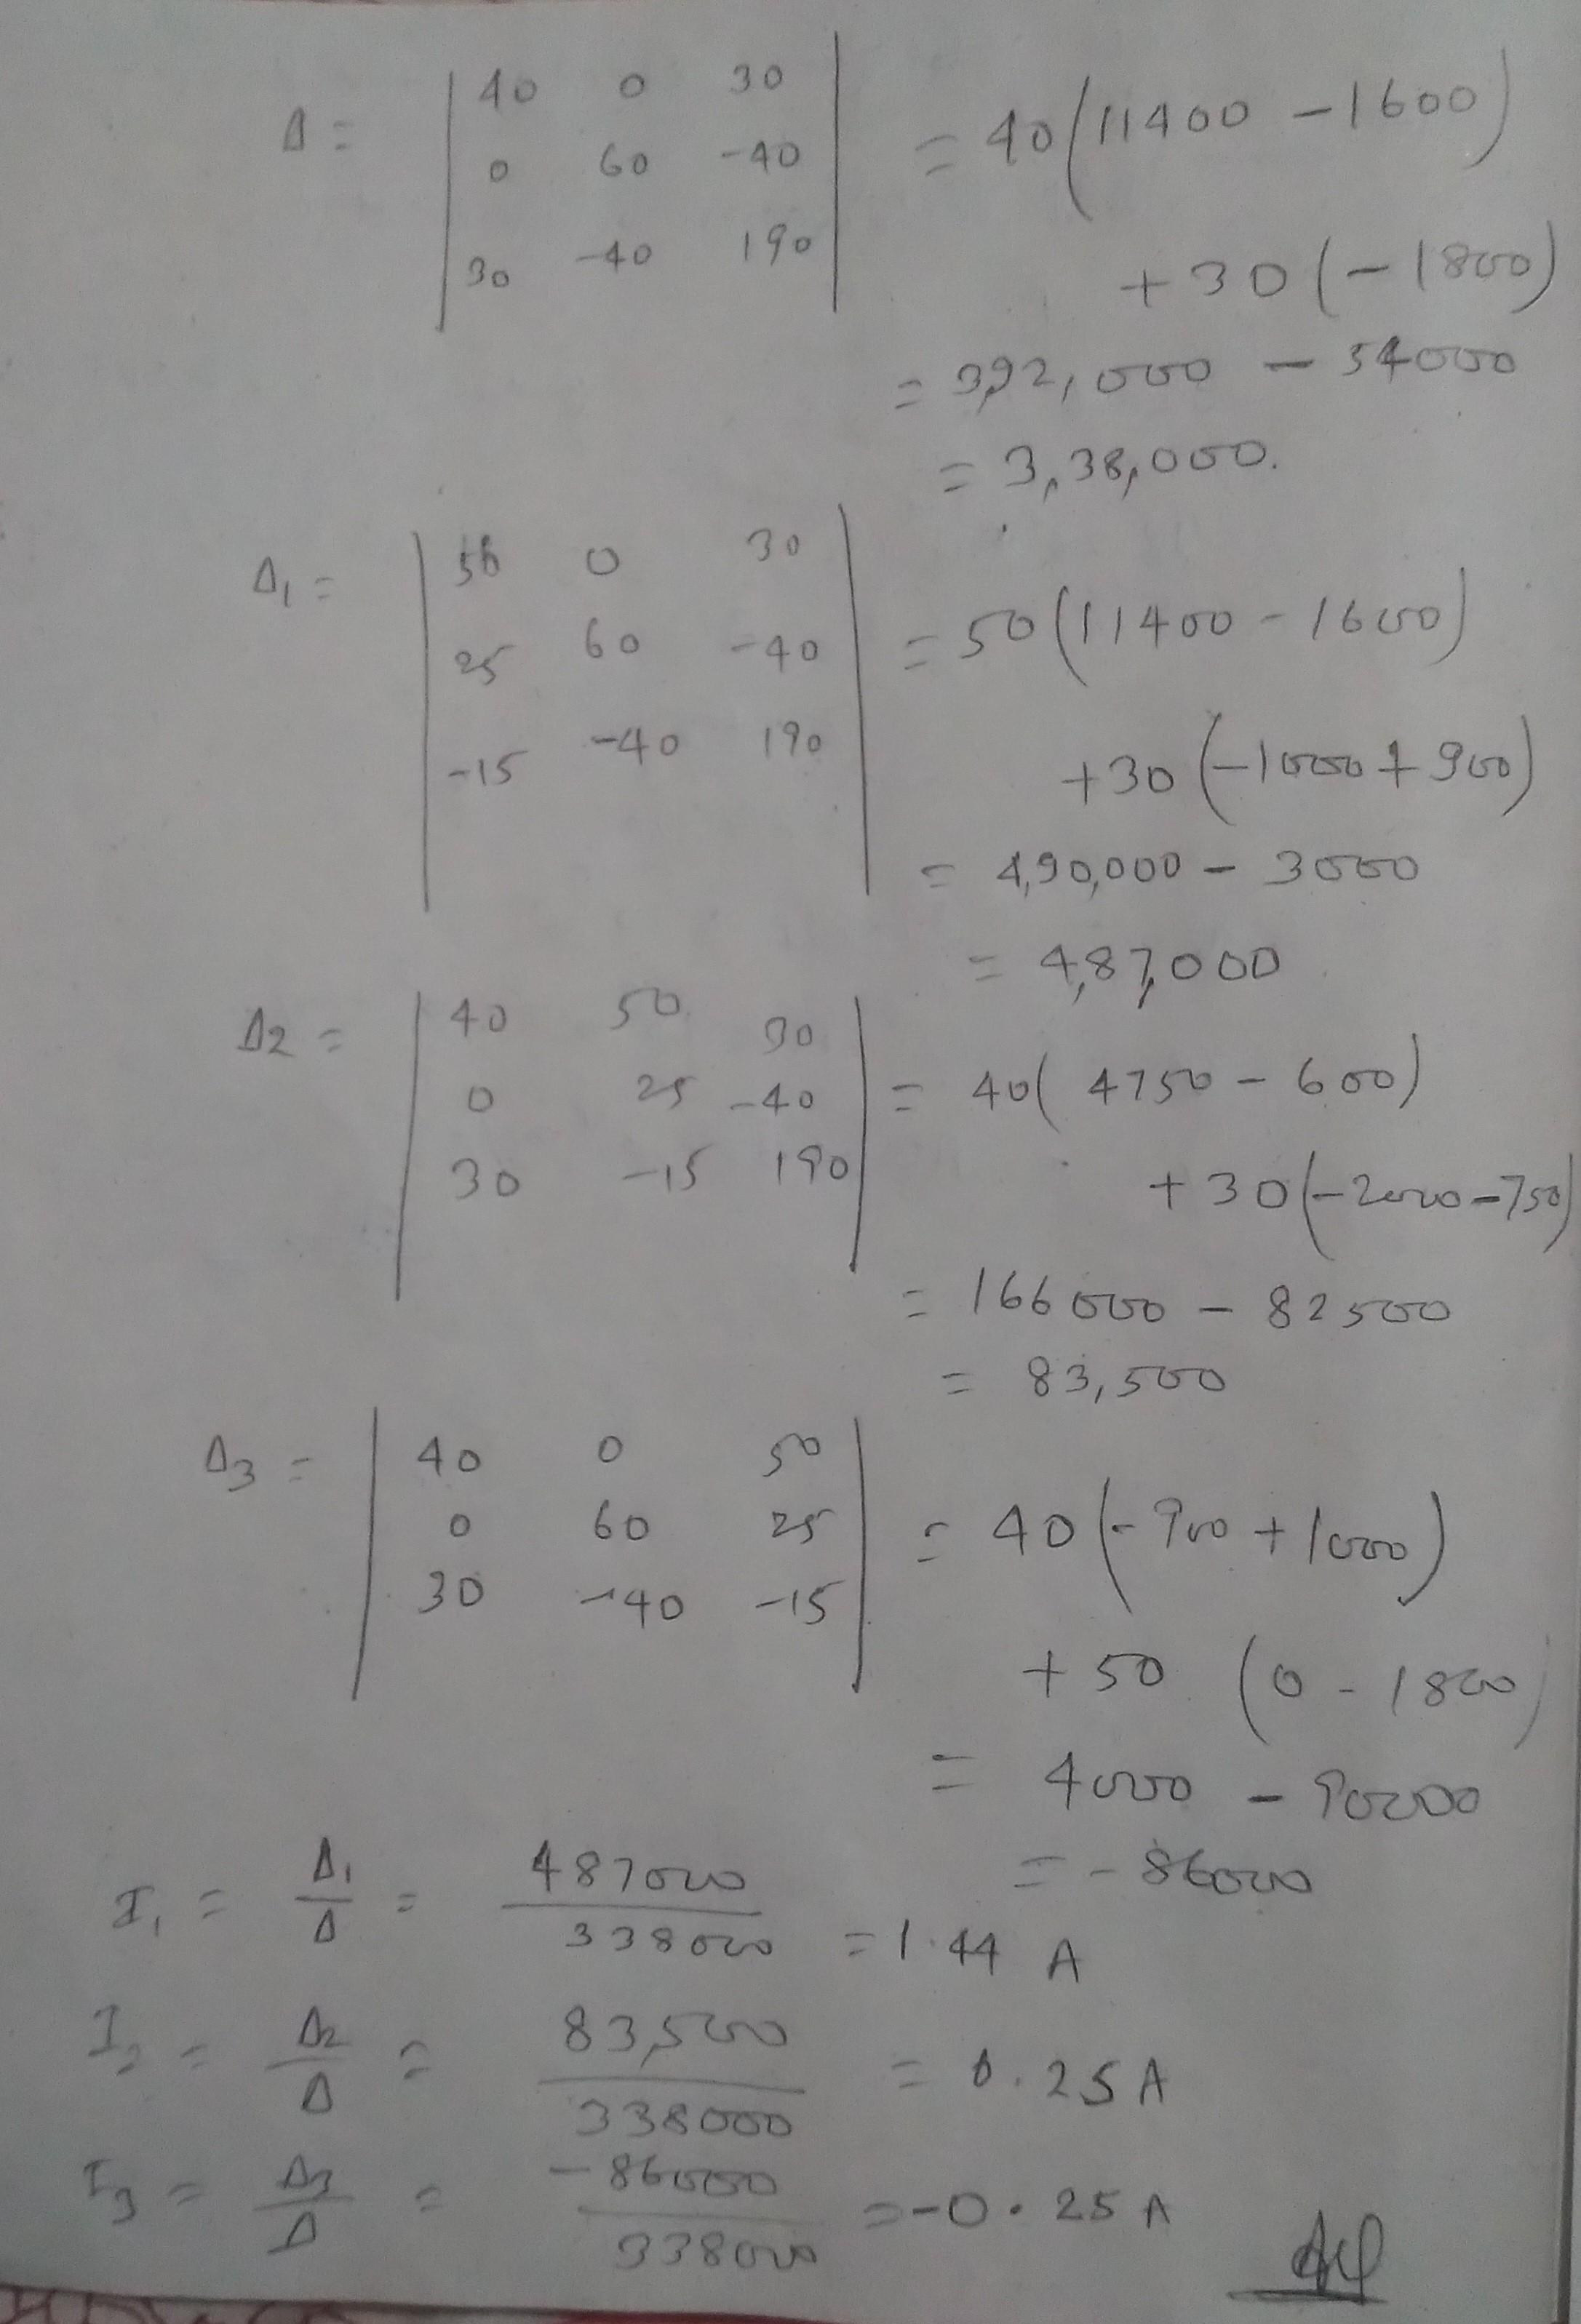 Δ = | 40 0 30 | = 40(11400 - 1600)
| 0 60 -40 |
| 30 -40 190 | +30(-1800)
= 3,92,000 - 54000
= 3,38,000.
Δ1 = | 50 0 30 |
| 25 60 -40 | = 50(11400 - 1600)
| -15 -40 190 | +30(-1000+900)
= 4,90,000 - 3000
= 4,87,000
Δ2 = | 40 50 30 |
| 0 25 -40 | = 40(4750 - 600)
| 30 -15 190 | +30(-2000-750)
= 166000 - 82500
= 83,500
Δ3 = | 40 0 50 |
| 0 60 25 | = 40(-900+1000)
| 30 -40 -15 |
+50 (0-1800)
= 4000 - 90000
= -86000
I1 = Δ1/Δ = 487000/338000 = 1.44 A
I2 = Δ2/Δ = 83,500/338000 = 0.25 A
I3 = Δ3/Δ = -86000/338000 = -0.25 A